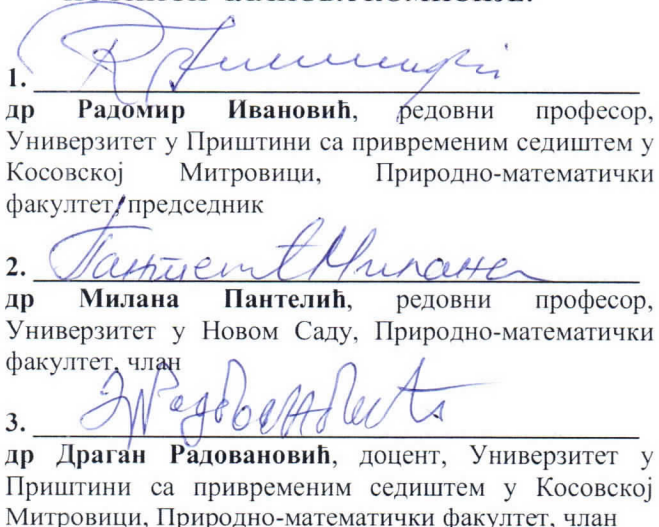 1.
др Радомир Ивановић, редовни професор,
Универзитет у Приштини са привременим седиштем у
Косовској Митровици, Природно-математички
факултет, председник
2. Пантелић Милана
др Милана Пантелић, редовни професор,
Универзитет у Новом Саду, Природно-математички
факултет, члан
3.
др Драган Радовановић, доцент, Универзитет у
Приштини са привременим седиштем у Косовској
Митровици, Природно-математички факултет, члан